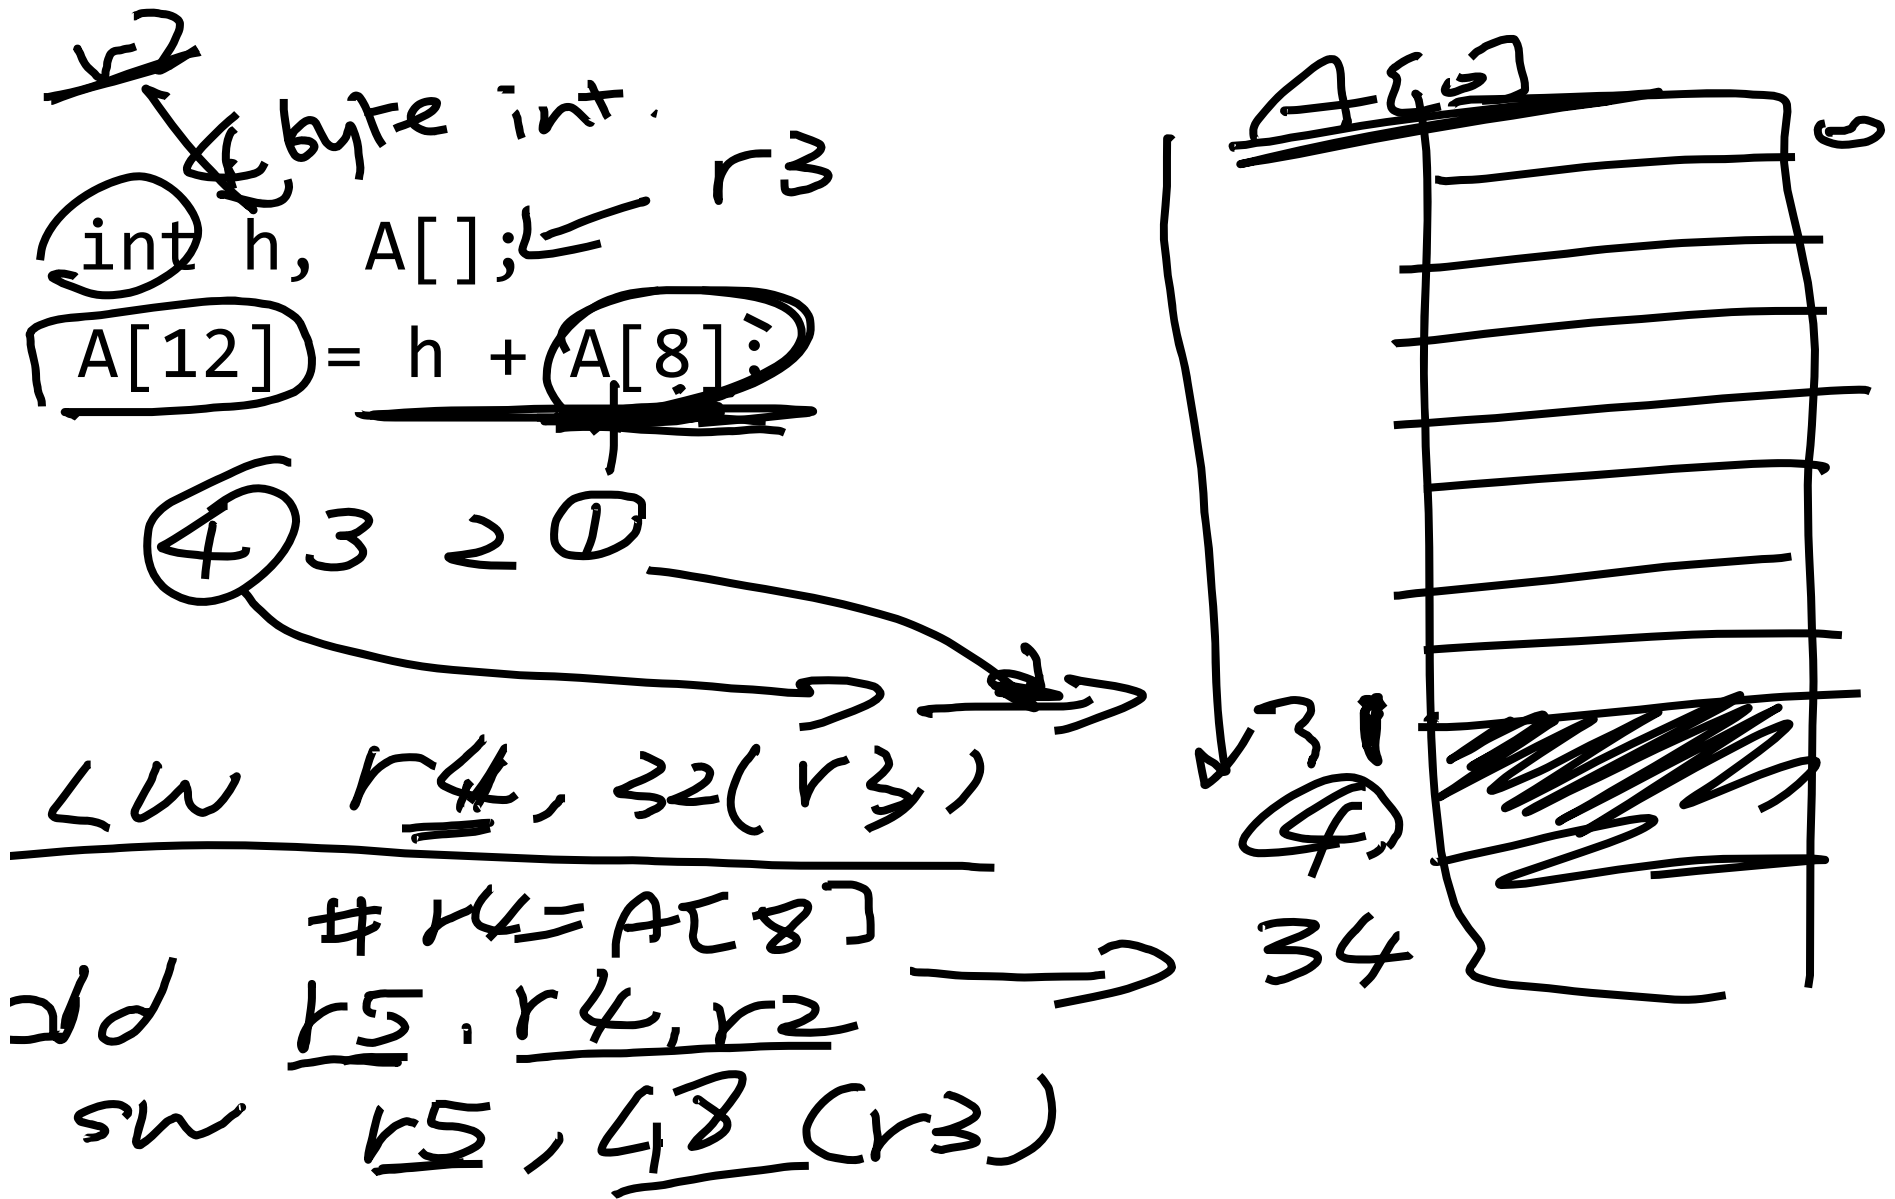 r2
4 byte int.
r3
int h, A[];
A[12] = h + A[8];
4 3 2 1
lw r4, 32(r3)
# r4 = A[8]
add r5, r4, r2
sw r5, 48(r3)
A[0]
0
4
34